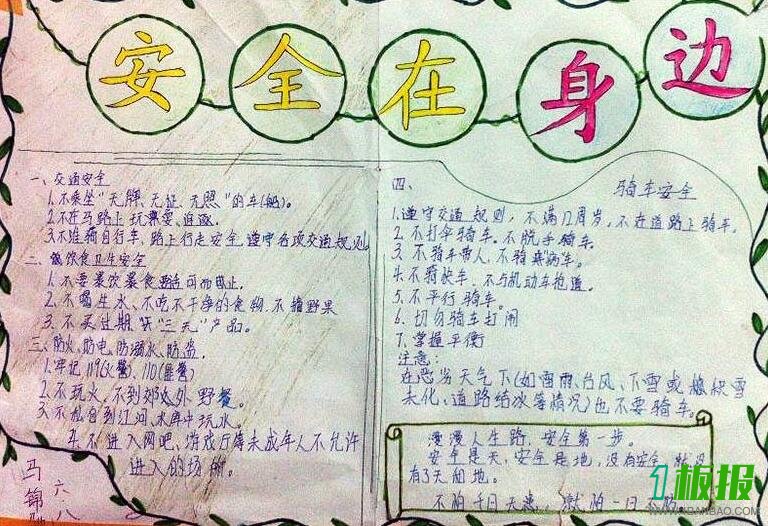 安全在身边
一、交通安全
1.不乘坐“无牌、无证、无照”的车(船)。
2.不在马路上玩耍、追逐。
3.不准骑自行车,路上行走安全,遵守各项交通规则。
二、饮食卫生安全
1.不要暴饮暴食,适可而止。
2.不喝生水、不吃不干净的食物、不摘野果
3.不买过期“三无”产品。
三、防火、防电、防溺水、防盗。
1.牢记119(火警)、110(匪警)
2.不玩火,不到郊外野餐。
3.不私自到江河、水库中玩水。
4.不进入网吧、游戏厅等未成年人不允许
进入的场所。
马锦
六、八
四、骑车安全
1.遵守交通规则,不满12周岁,不在道路上骑车。
2.不打伞骑车。不脱手骑车。
3.不骑车带人。不骑病车。
4.不骑快车。不与机动车抢道。
5.不平行骑车。
6.切勿骑车打闹
7.掌握平衡
注意:
在恶劣天气下(如雷雨、台风、下雪或积雪
未化、道路结冰等情况)也不要骑车。
漫漫人生路,安全第一步。
安全是天,安全是地,没有安全,就没
有了天和地。
不怕千日无患,就怕一日
1板报
WWW.1BANBAO.COM